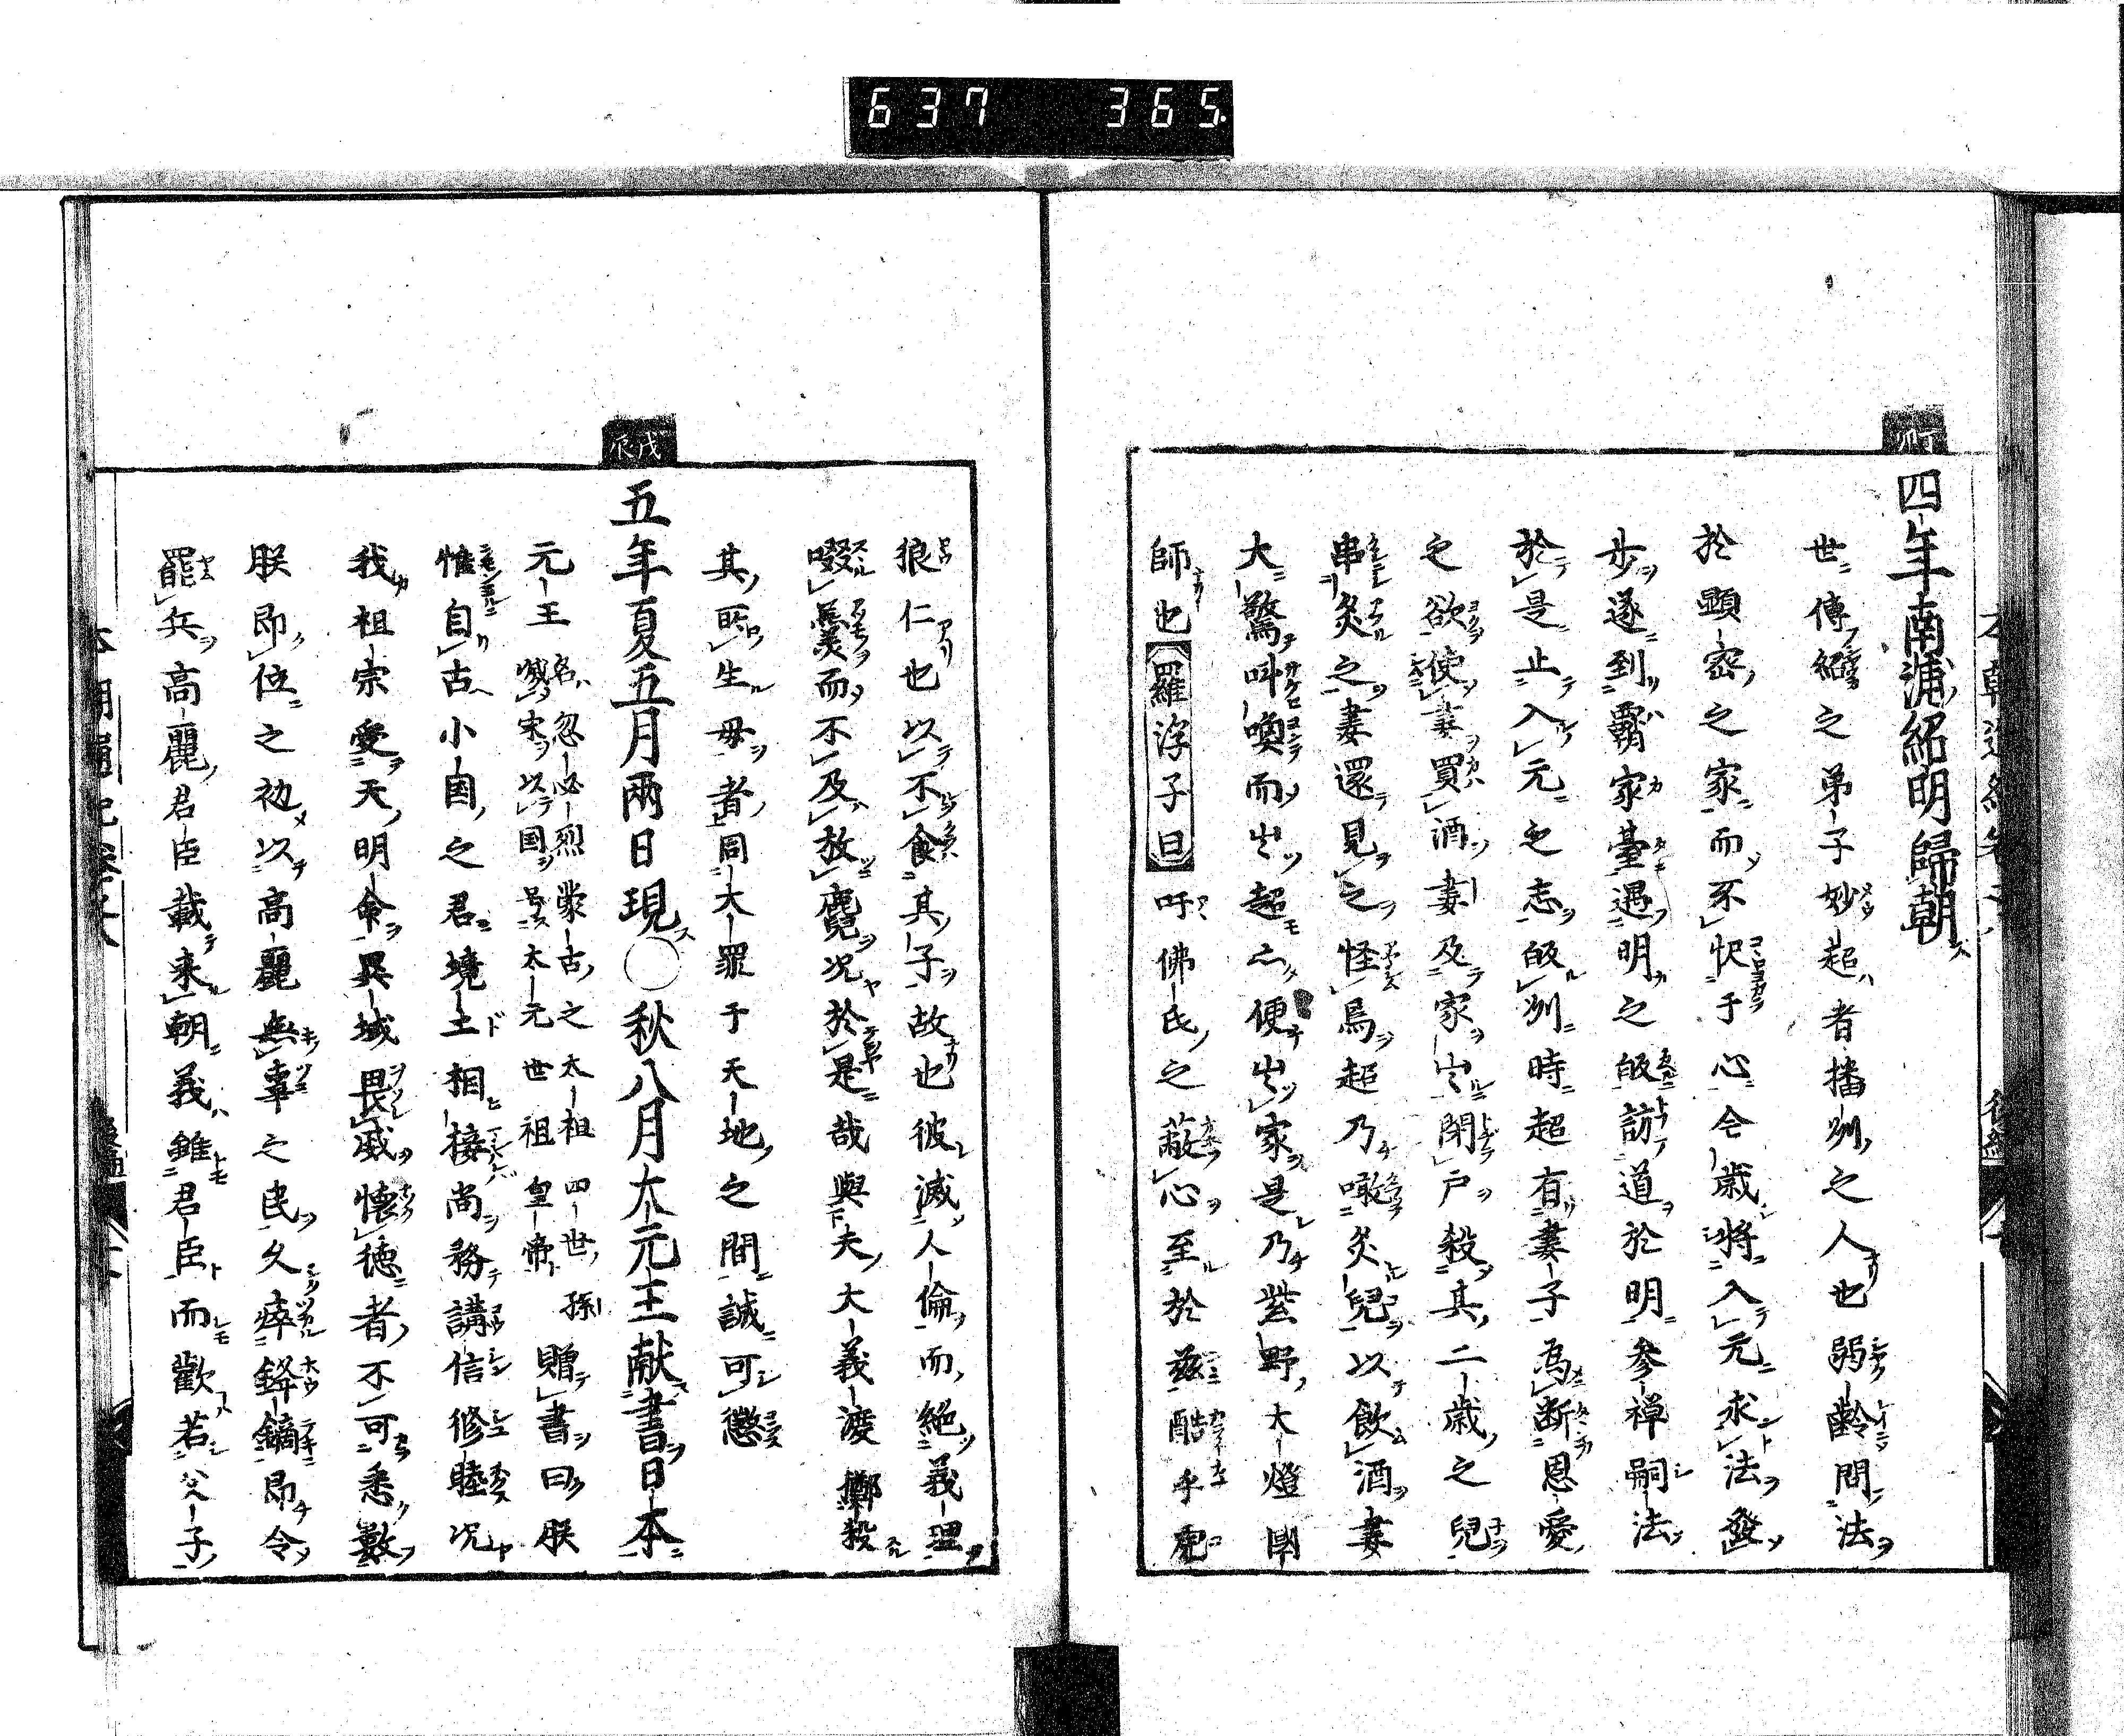 637 365
丁卯
四年南浦紹明歸朝
世傳紹之弟子妙超者播州之人也弱齡問法
於顕密之家而不快于心仝歳将入元求法發
歩遂到覇家臺遇明之皈訪道於明参禅嗣法
於是止入元之志皈州時超有妻子為断恩愛
之欲使妻買酒妻及家出閉戸殺其二歳之兒
串炙之妻還見之怪焉超乃噉炙兒以飲酒妻
大驚叫喚而出超亡便出家是乃紫野大燈國
師也羅浮子曰吁佛氏之蔽心至於茲酷乎虎
狼仁也以不食其子故也彼滅人倫而絶義理
啜羹而不及放麑况於是哉與夫大義渡擲殺
其所生母者同大罪于天地之間誠可懲
戊辰
五年夏五月兩日現○秋八月大元王献書日本
元王名忽必烈蒙古之太祖四世孫
滅宋以国号太元世祖皇帝贈書曰朕
惟自古小国之君境土相接尚務講信修睦况
我祖宗受天明命異域畏威懐徳者不可悉數
朕即位之初以高麗無辜之民久瘁鋒鏑即令
罷兵高麗君臣載来朝義雖君臣而歡若父子